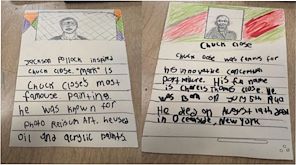 Jackson Pollock inspired
Chuck Close. "Mark" is
Chuck Close's most
famouse painting.
he was known for
Photo Realism Art. he used
oil and acrylic paints.
Chuck Close
Chuck Close was famous for
his innovative
portraiture. His full name
is Charles Thomas Close. He
was Born on July 5th 1940
He Died on August 19th 2021
in Oceanside, New York